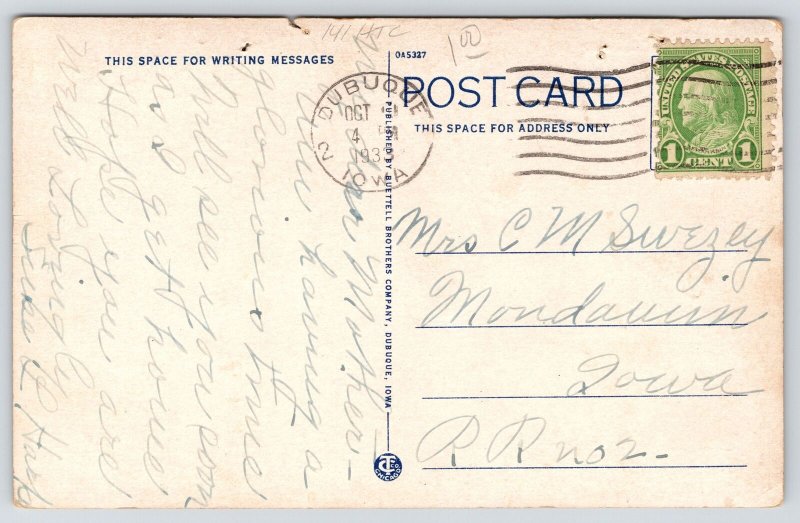 141 HTC
1 00
THIS SPACE FOR WRITING MESSAGES
0A5327
POST CARD
THIS SPACE FOR ADDRESS ONLY
DUBUQUE
OCT
4
193
2 IOWA
UNITED STATES POSTAGE
1 CENT 1
PUBLISHED BY BUETTELL BROTHERS COMPANY, DUBUQUE, IOWA
CHICAGO
Mother-
Am having a
glorious time
Will see you soon
as I get home
Hope you are
well. Lovingly
Mrs C M Swezey
Mondamin
Iowa
R R no 2-